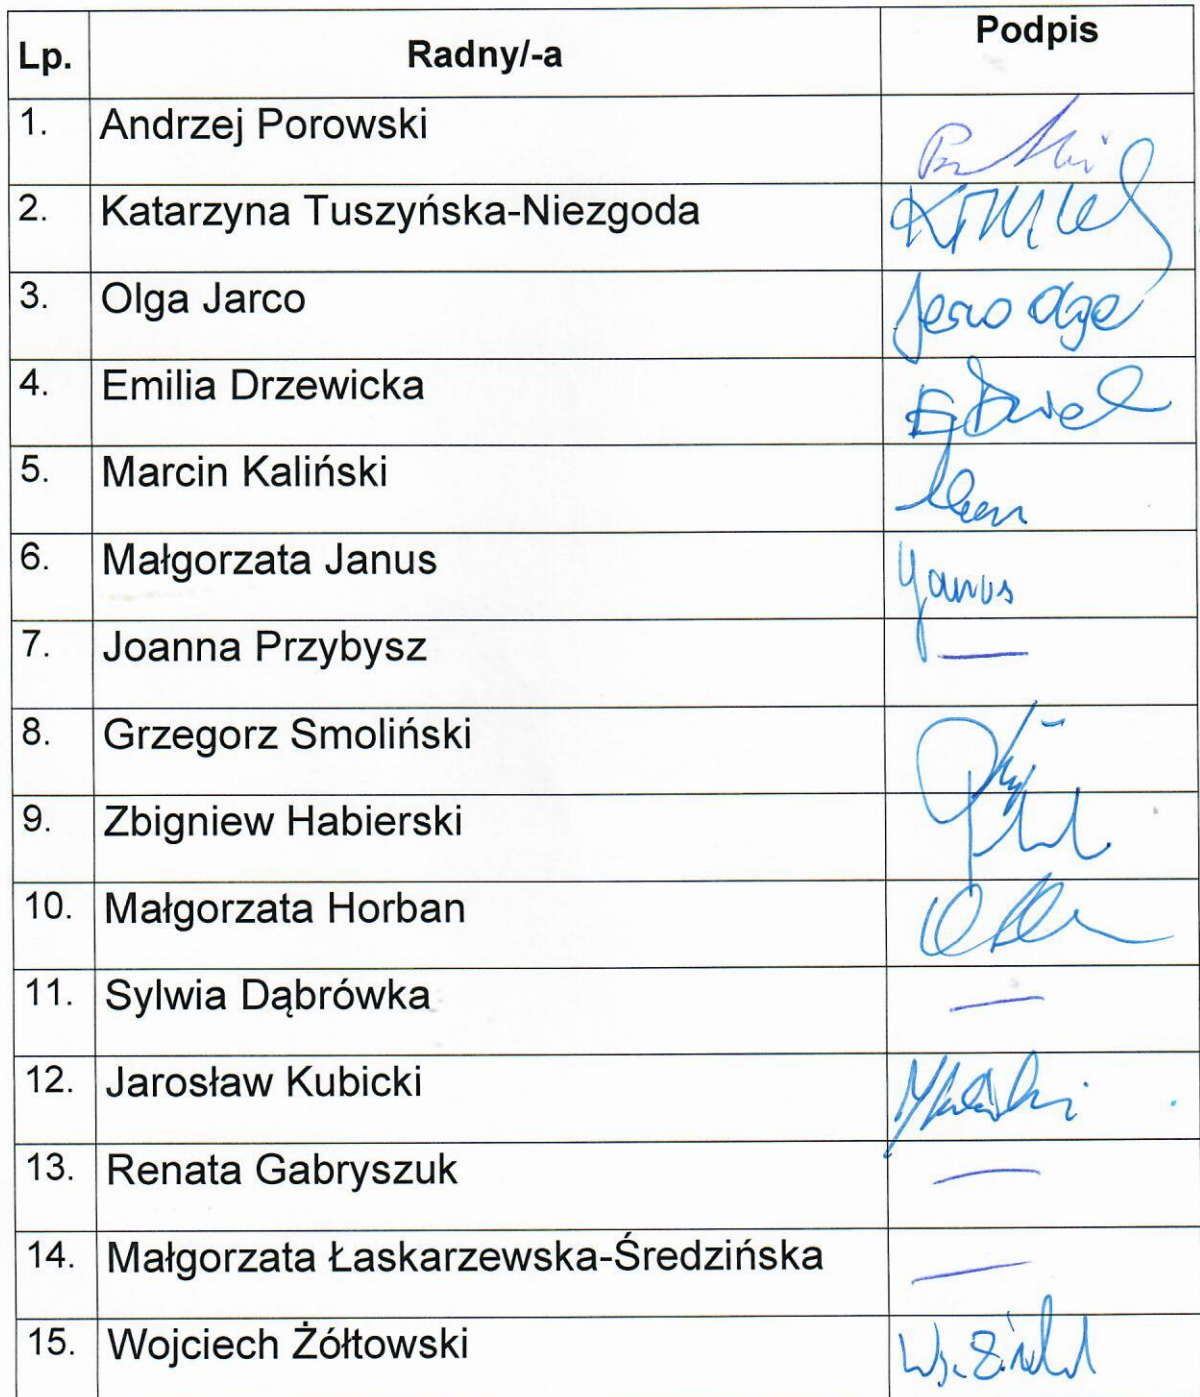 Lp. Radny/-a Podpis
1. Andrzej Porowski
2. Katarzyna Tuszyńska-Niezgoda
3. Olga Jarco
4. Emilia Drzewicka
5. Marcin Kaliński
6. Małgorzata Janus Janus
7. Joanna Przybysz —
8. Grzegorz Smoliński
9. Zbigniew Habierski
10. Małgorzata Horban
11. Sylwia Dąbrówka —
12. Jarosław Kubicki
13. Renata Gabryszuk —
14. Małgorzata Łaskarzewska-Średzińska —
15. Wojciech Żółtowski